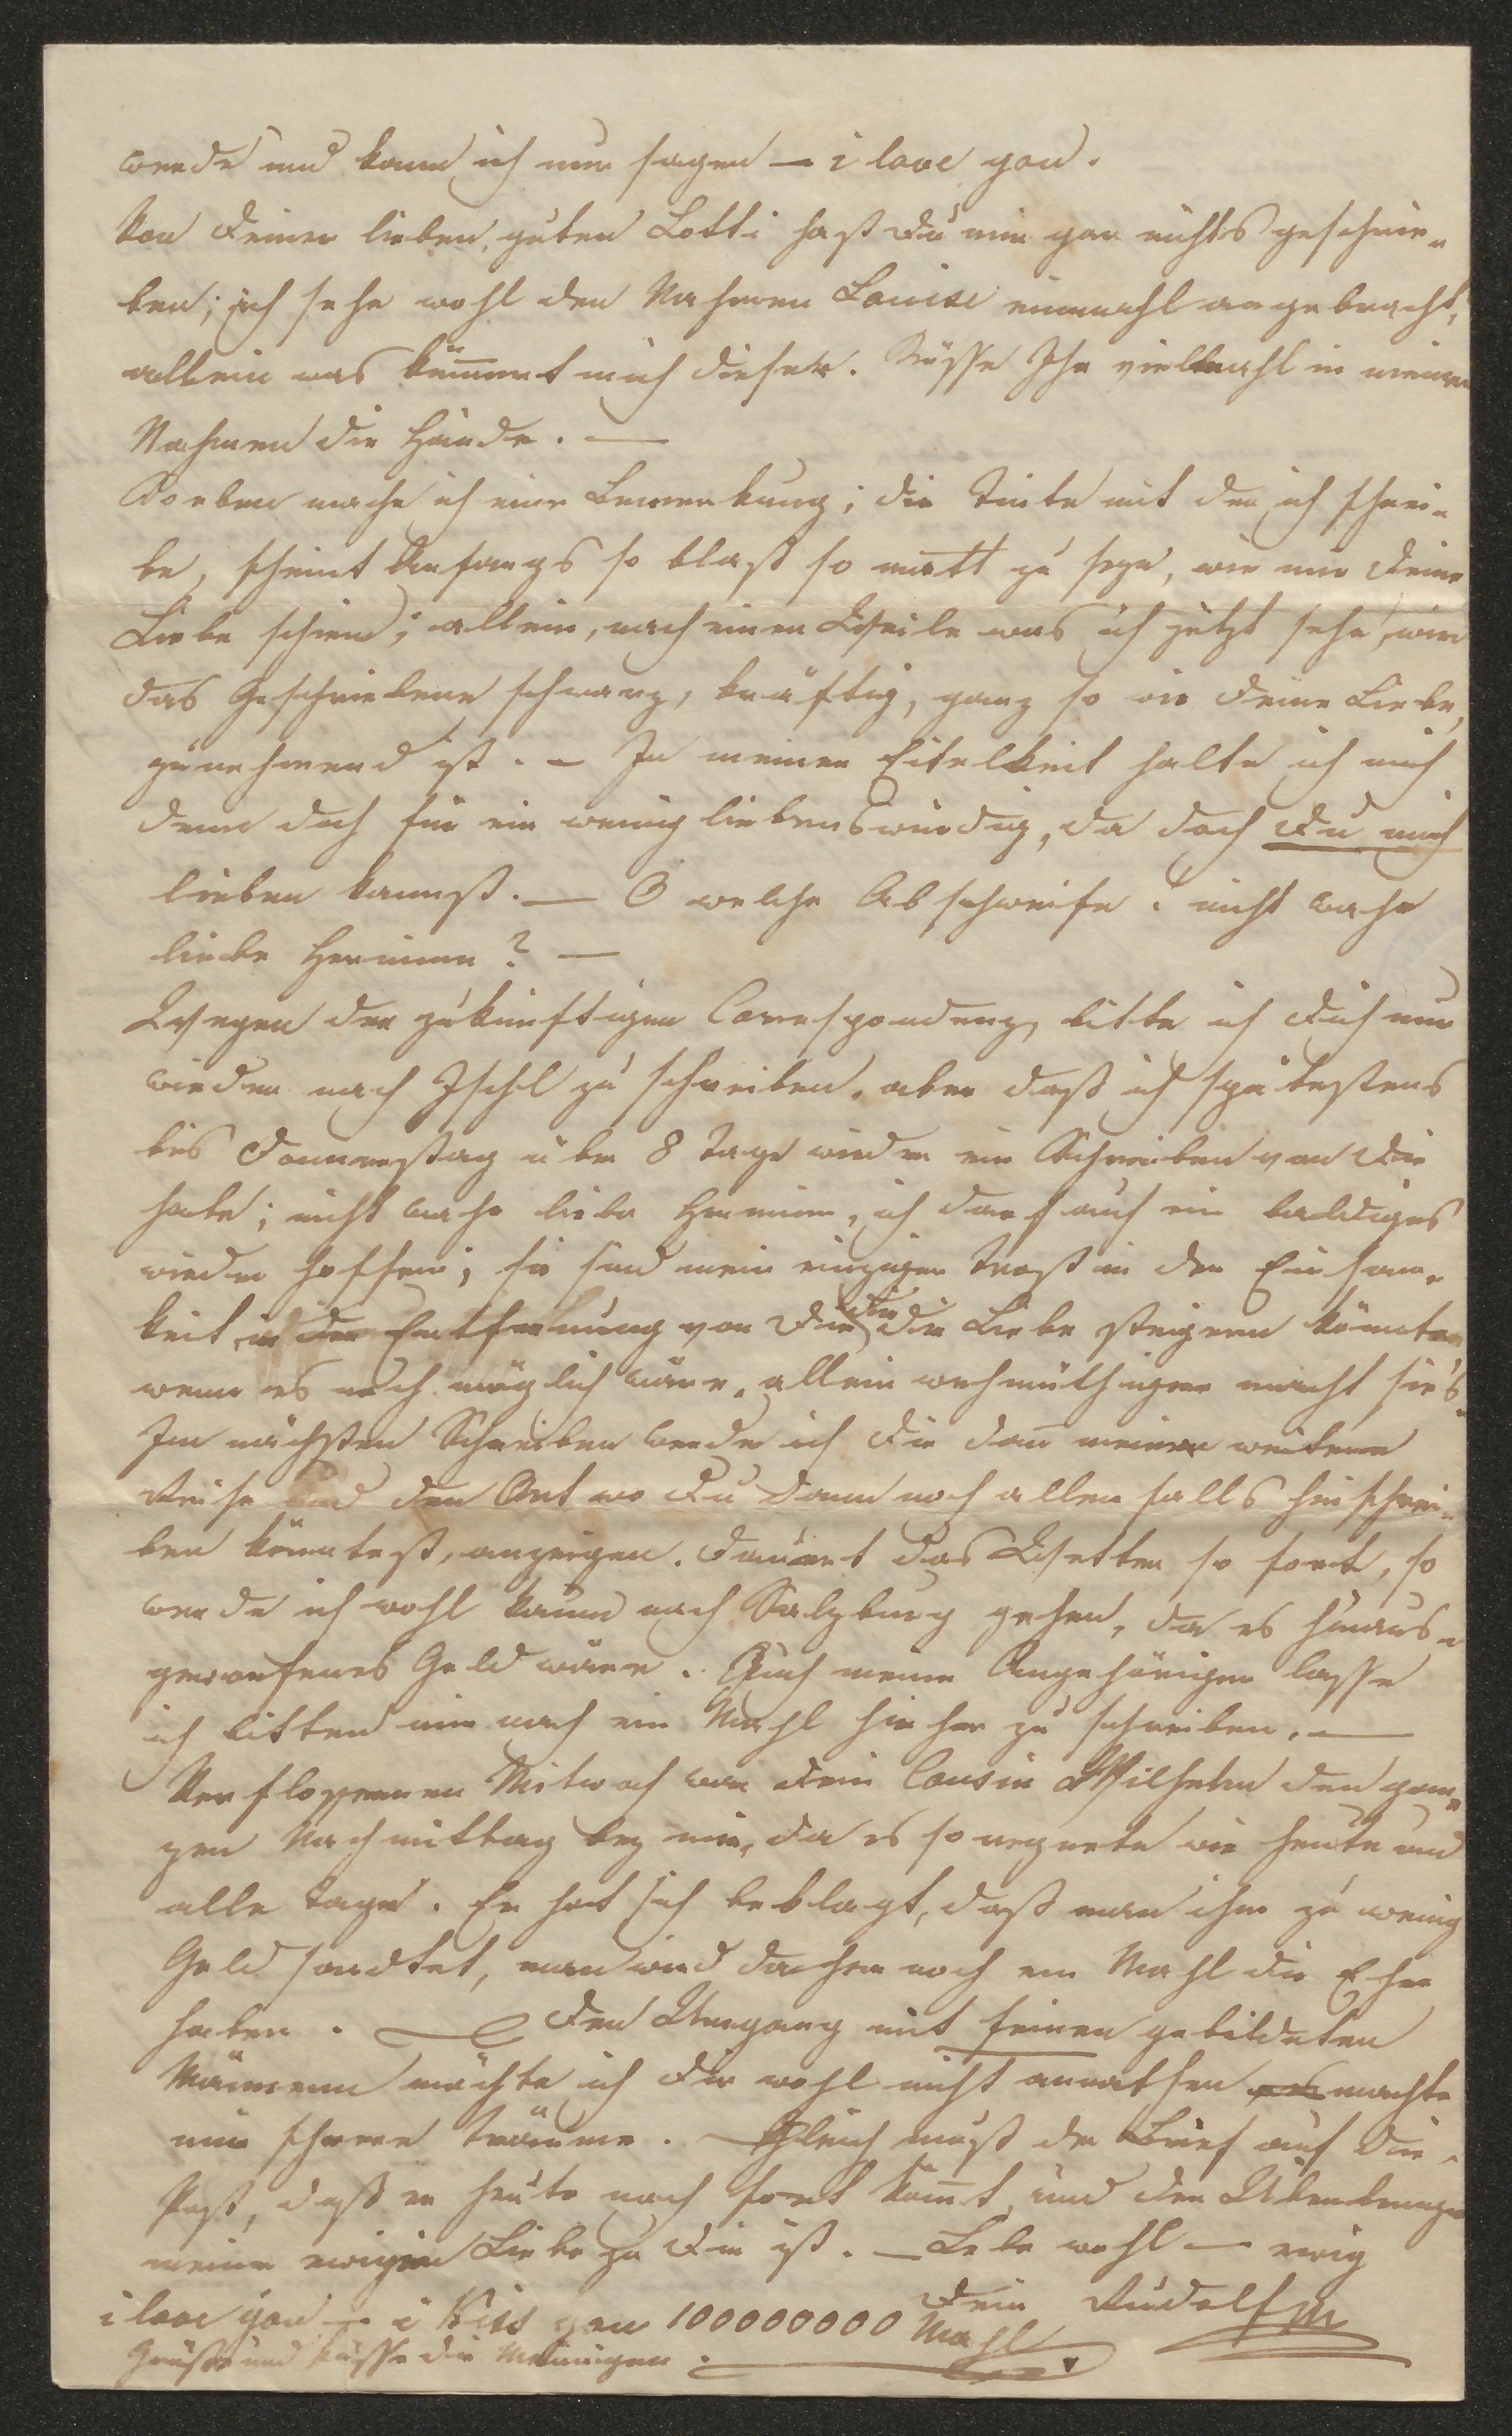 werde und kann ich nur sagen — i love you.
Von Deiner lieben, guten Lotti hast Du mir gar nichts geschrie-
ben; ich sehe wohl den Nahmen Louise einmahl angebracht,
allein was kümmert mich dieser. Küsse Ihr vielmahl in meinem
Nahmen die Hände. —
Soeben mache ich eine Bemerkung; die Tinte mit der ich schrei-
be, scheint Anfangs so blaß so matt zu seyn, wie mir Deine
Liebe schien; allein, nach einer Weile was ich jetzt sehe, wird
das Geschriebene schwarz, kräftig, ganz so wie Deine Liebe,
zunehmend ist. — In meiner Eitelkeit halte ich mich
denn doch für ein wenig liebenswürdig, da doch Du mich
lieben kannst. — O welche Abschweife. nicht wahr
liebe Hermine? —
Wegen der zukünftigen Correspondenz, bitte ich Dich nur
wieder nach Ischl zu schreiben, aber daß ich spätestens
bis Donnerstag über 8 Tage wieder ein Schreiben von Dir
habe; nicht wahr liebe Hermine, ich darf auch ein baldiges
wieder hoffen; sie sind mein einziger Trost in der Einsam-
keit, in der Entfernung von Dir, die die Liebe steigern könnte
wenn es noch möglich wäre, allein wehmüthiger macht sie's.
Im nächsten Schreiben werde ich Dir dann meine weitere
Reise und den Ort wo Du dann noch allenfalls hinschrei-
ben könntest, anzeigen. Dauert das Wetter so fort, so
werde ich wohl kaum nach Salzburg gehen, da es hinaus-
geworfenes Geld wäre. Auch meine Angehörigen lasse
ich bitten mir noch ein Mahl hieher zu schreiben. —
Verflossenen Mitwoch war Dein Cousin Wilhelm den gan-
zen Nachmittag bey mir, da es so regnete wie heute und
alle Tage. Er hat sich beklagt, daß man ihm zu wenig
Geld sendtet, man wird daher noch ein Mahl die Ehre
haben. — Den Umgang mit feinen gebildeten
Männern möchte ich Dir wohl nicht anrathen es machte
mir schwere Träume. — Gleich muß der Brief auf die
Post, daß er heute noch fort kommt, und der Überbringer
meiner ewigen Liebe zu Dir ist. — Lebe wohl — ewig
Dein Rudolf
i love you — i kiss you 100000000 Mahl
Grüße und küsse die Meinigen.